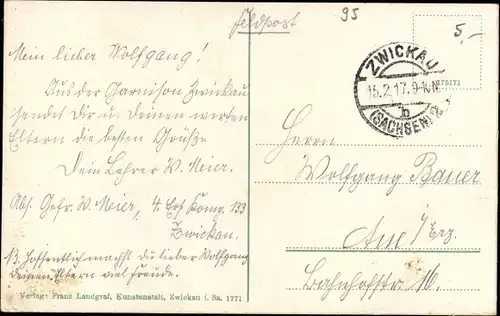 Feldpost
95
5,-
Mein lieber Wolfgang!
Aus der Garnison Zwickau
sendet Dir u. Deinen werten
Eltern die besten Grüße
Dein Lehrer W. Meier.
Abs. Gefr. W. Meier, 4. Ers. Komp. 133
Zwickau.
B. Hoffentlich machst du lieber Wolfgang
deinen Eltern viel Freude.
ZWICKAU
15.2.17. 9-10N
b
(SACHSEN) 2
Herrn
Wolfgang Bauer
Aue i/Erz.
Bahnhofstr. 16.
Verlag: Franz Landgraf, Kunstanstalt, Zwickau i. Sa. 1771